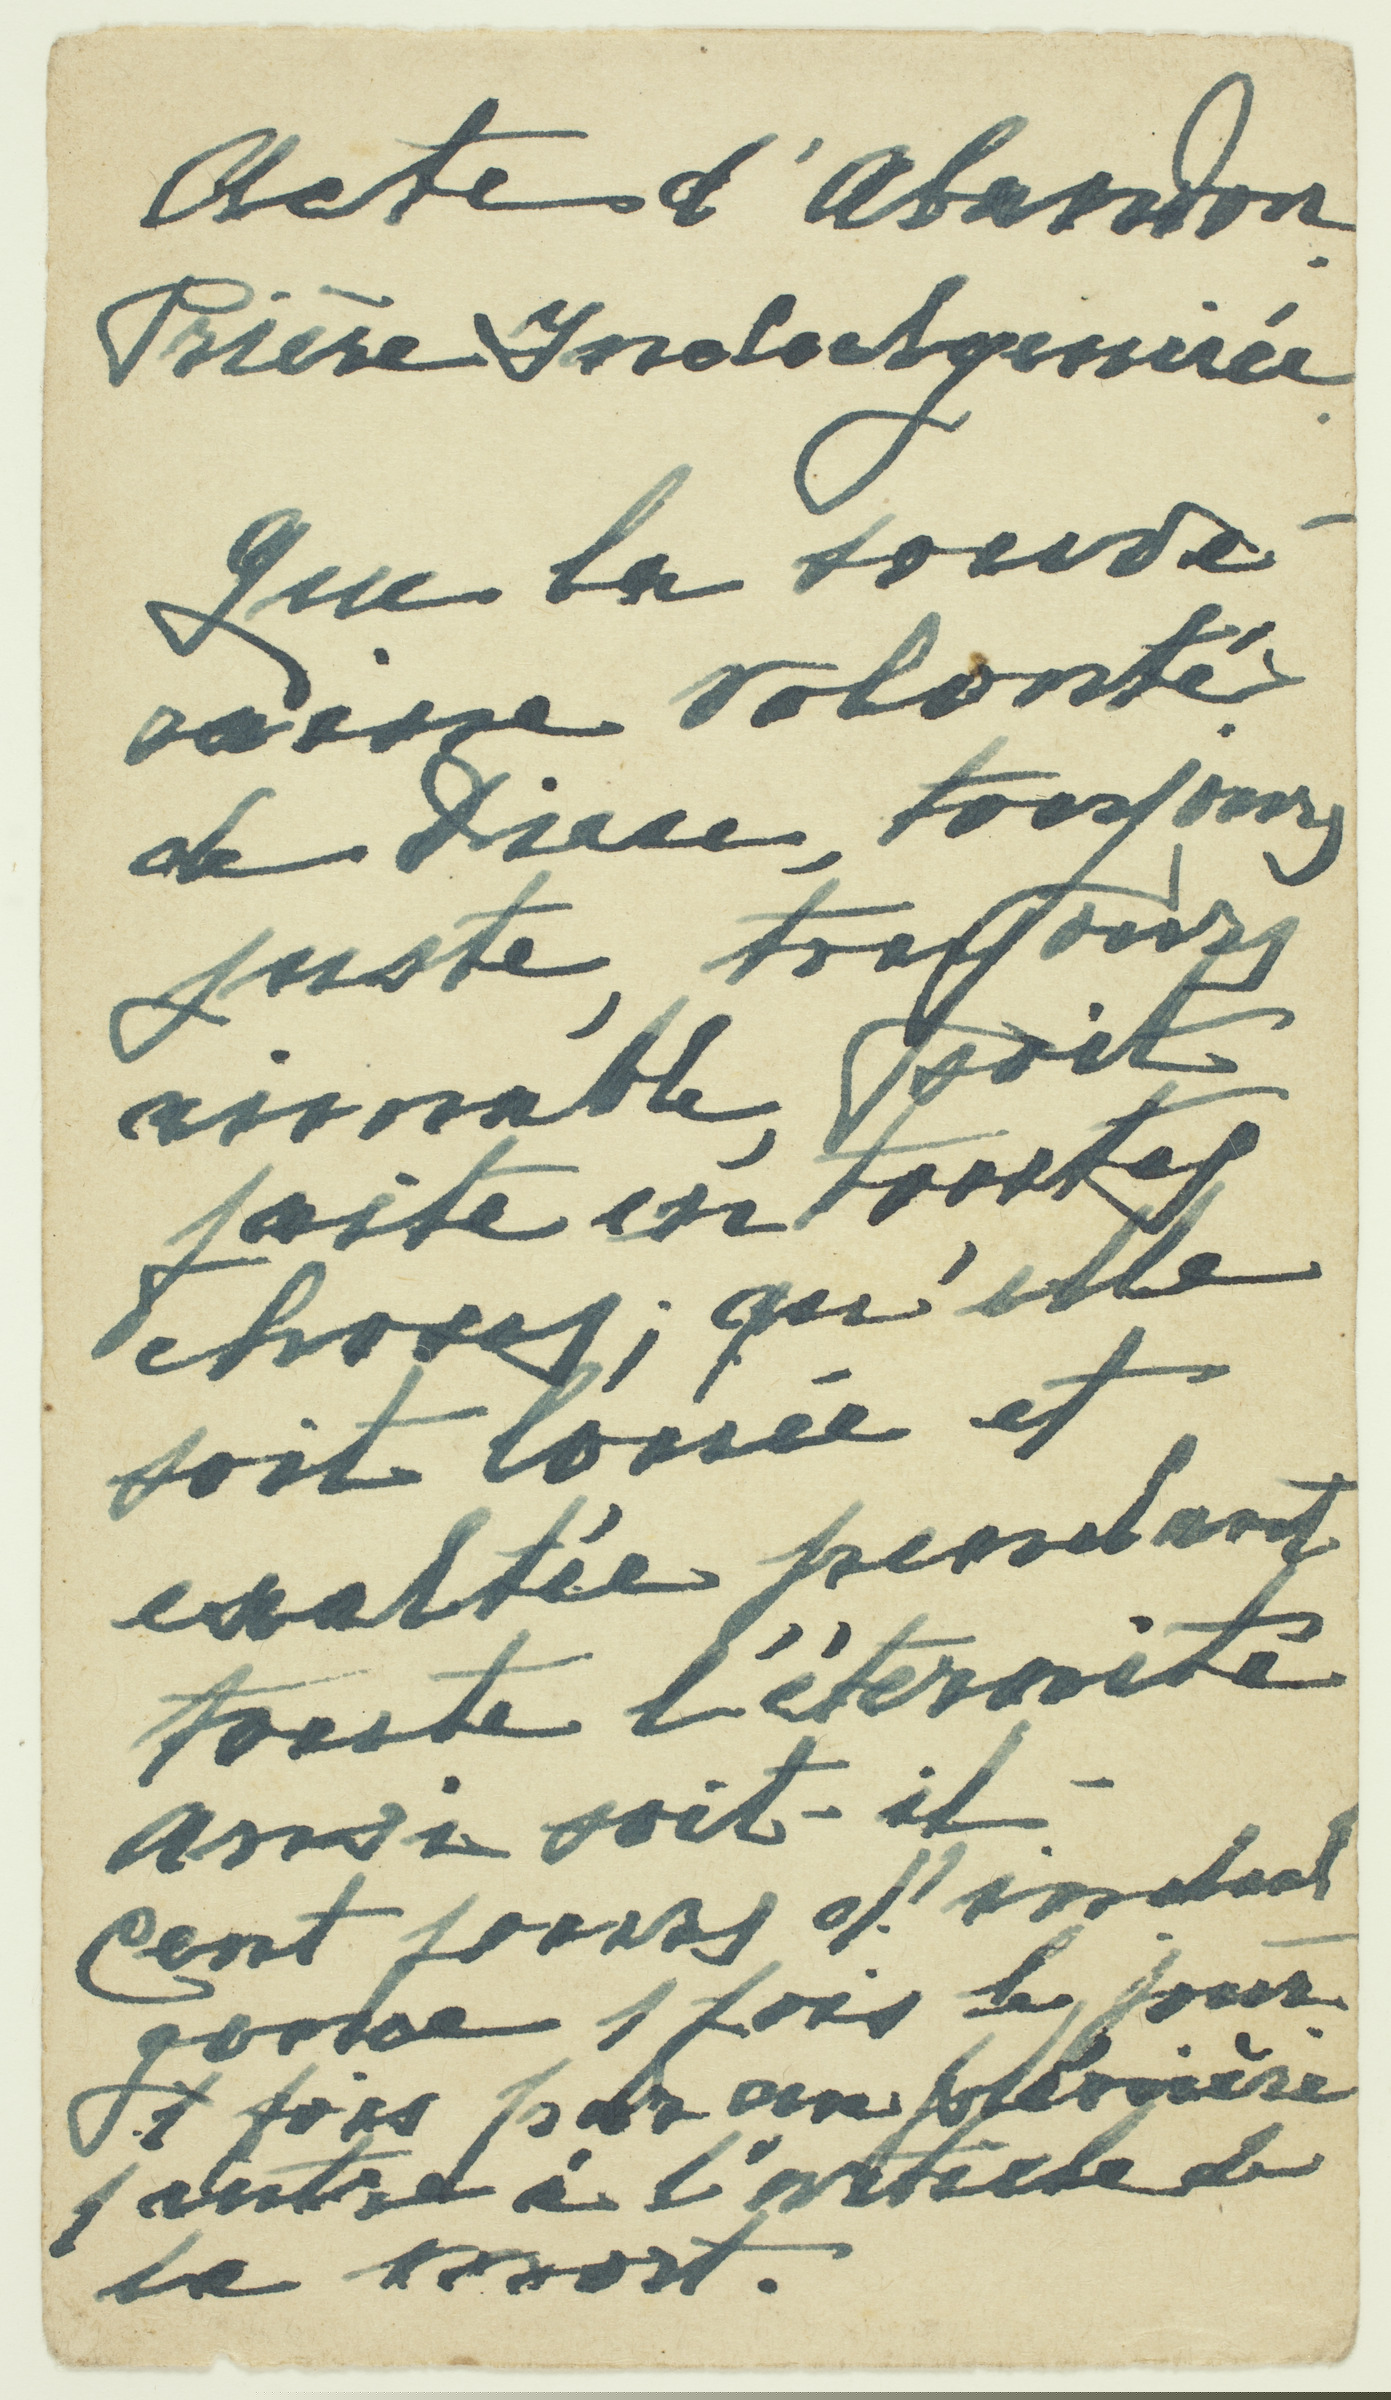 Acte d'Abandon
Prière Indulgenciée
Que la souve-
raine volonté
de Dieu, toujours
juste, toujours
aimable, soit
faite en toutes
choses; qu'elle
soit louée et
exaltée pendant
toute l'éternité
ainsi soit-il -
Cent jours d'indul
gence 1 fois le jour
1 fois par an plénière
1 autre à l'article de
la mort.